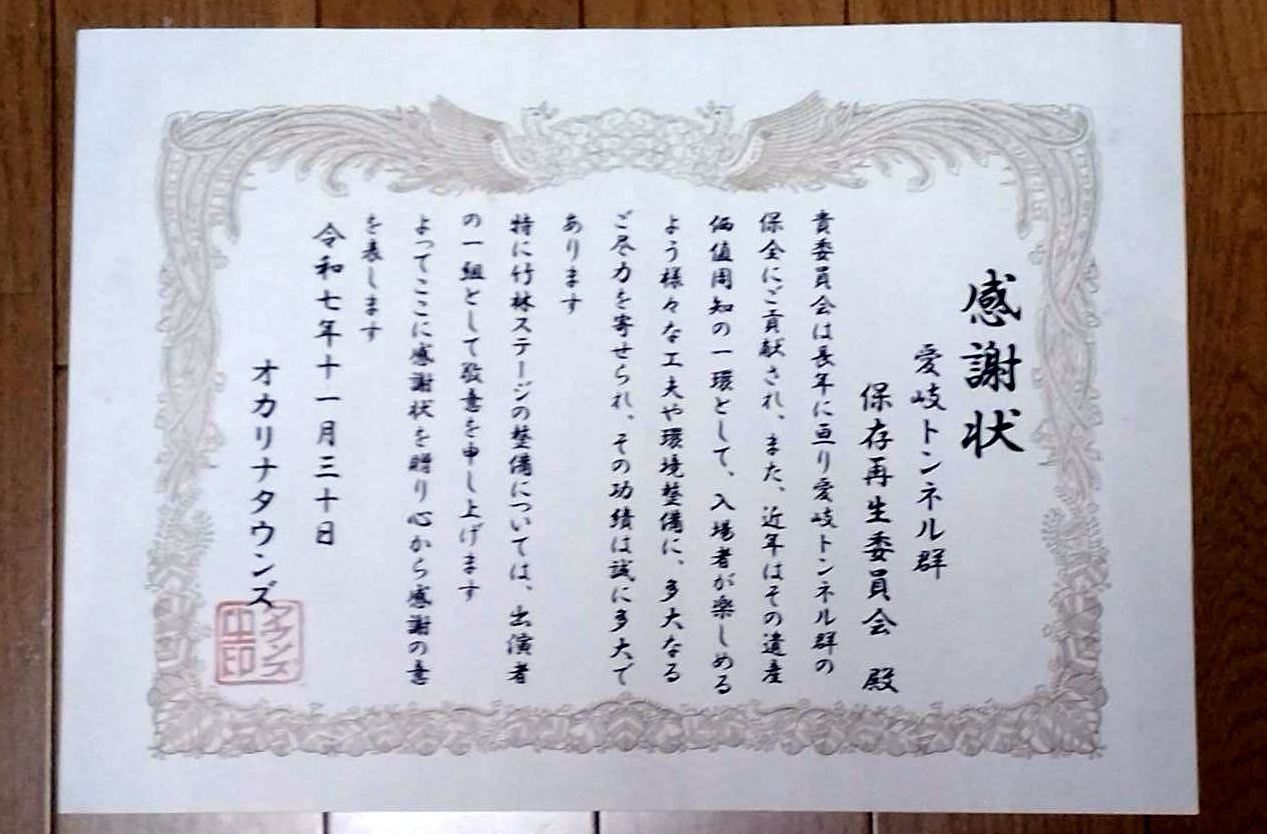 感謝状
愛岐トンネル群
保存再生委員会 殿
貴委員会は長年に亘り愛岐トンネル群の
保全にご貢献され、また、近年はその遺産
価値周知の一環として、入場者が楽しめる
よう様々な工夫や環境整備に、多大なる
ご尽力を寄せられ、その功績は誠に多大で
あります
特に竹林ステージの整備については、出演者
の一組として敬意を申し上げます
よってここに感謝状を贈り心から感謝の意
を表します
令和七年十一月三十日
オカリナタウンズ
タウンズ